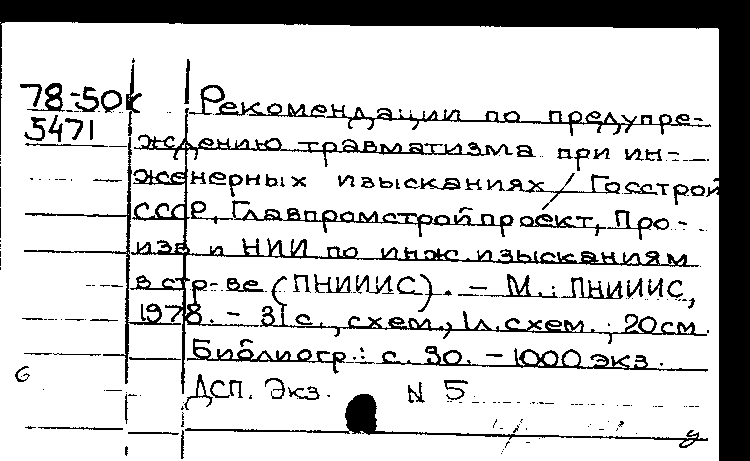 78-50к Рекомендации по предупре-
5471 ждению травматизма при ин-
женерных изысканиях / Госстрой
СССР, Главпромстройпроект, Про-
изв и НИИ по инж. изысканиям
в стр-ве (ПНИИИС). - М.: ПНИИИС,
1978. - 31 с., схем., 1 л. схем.; 20 см.
Библиогр.: с. 30. - 1000 экз.
ДСП. Экз. N 5